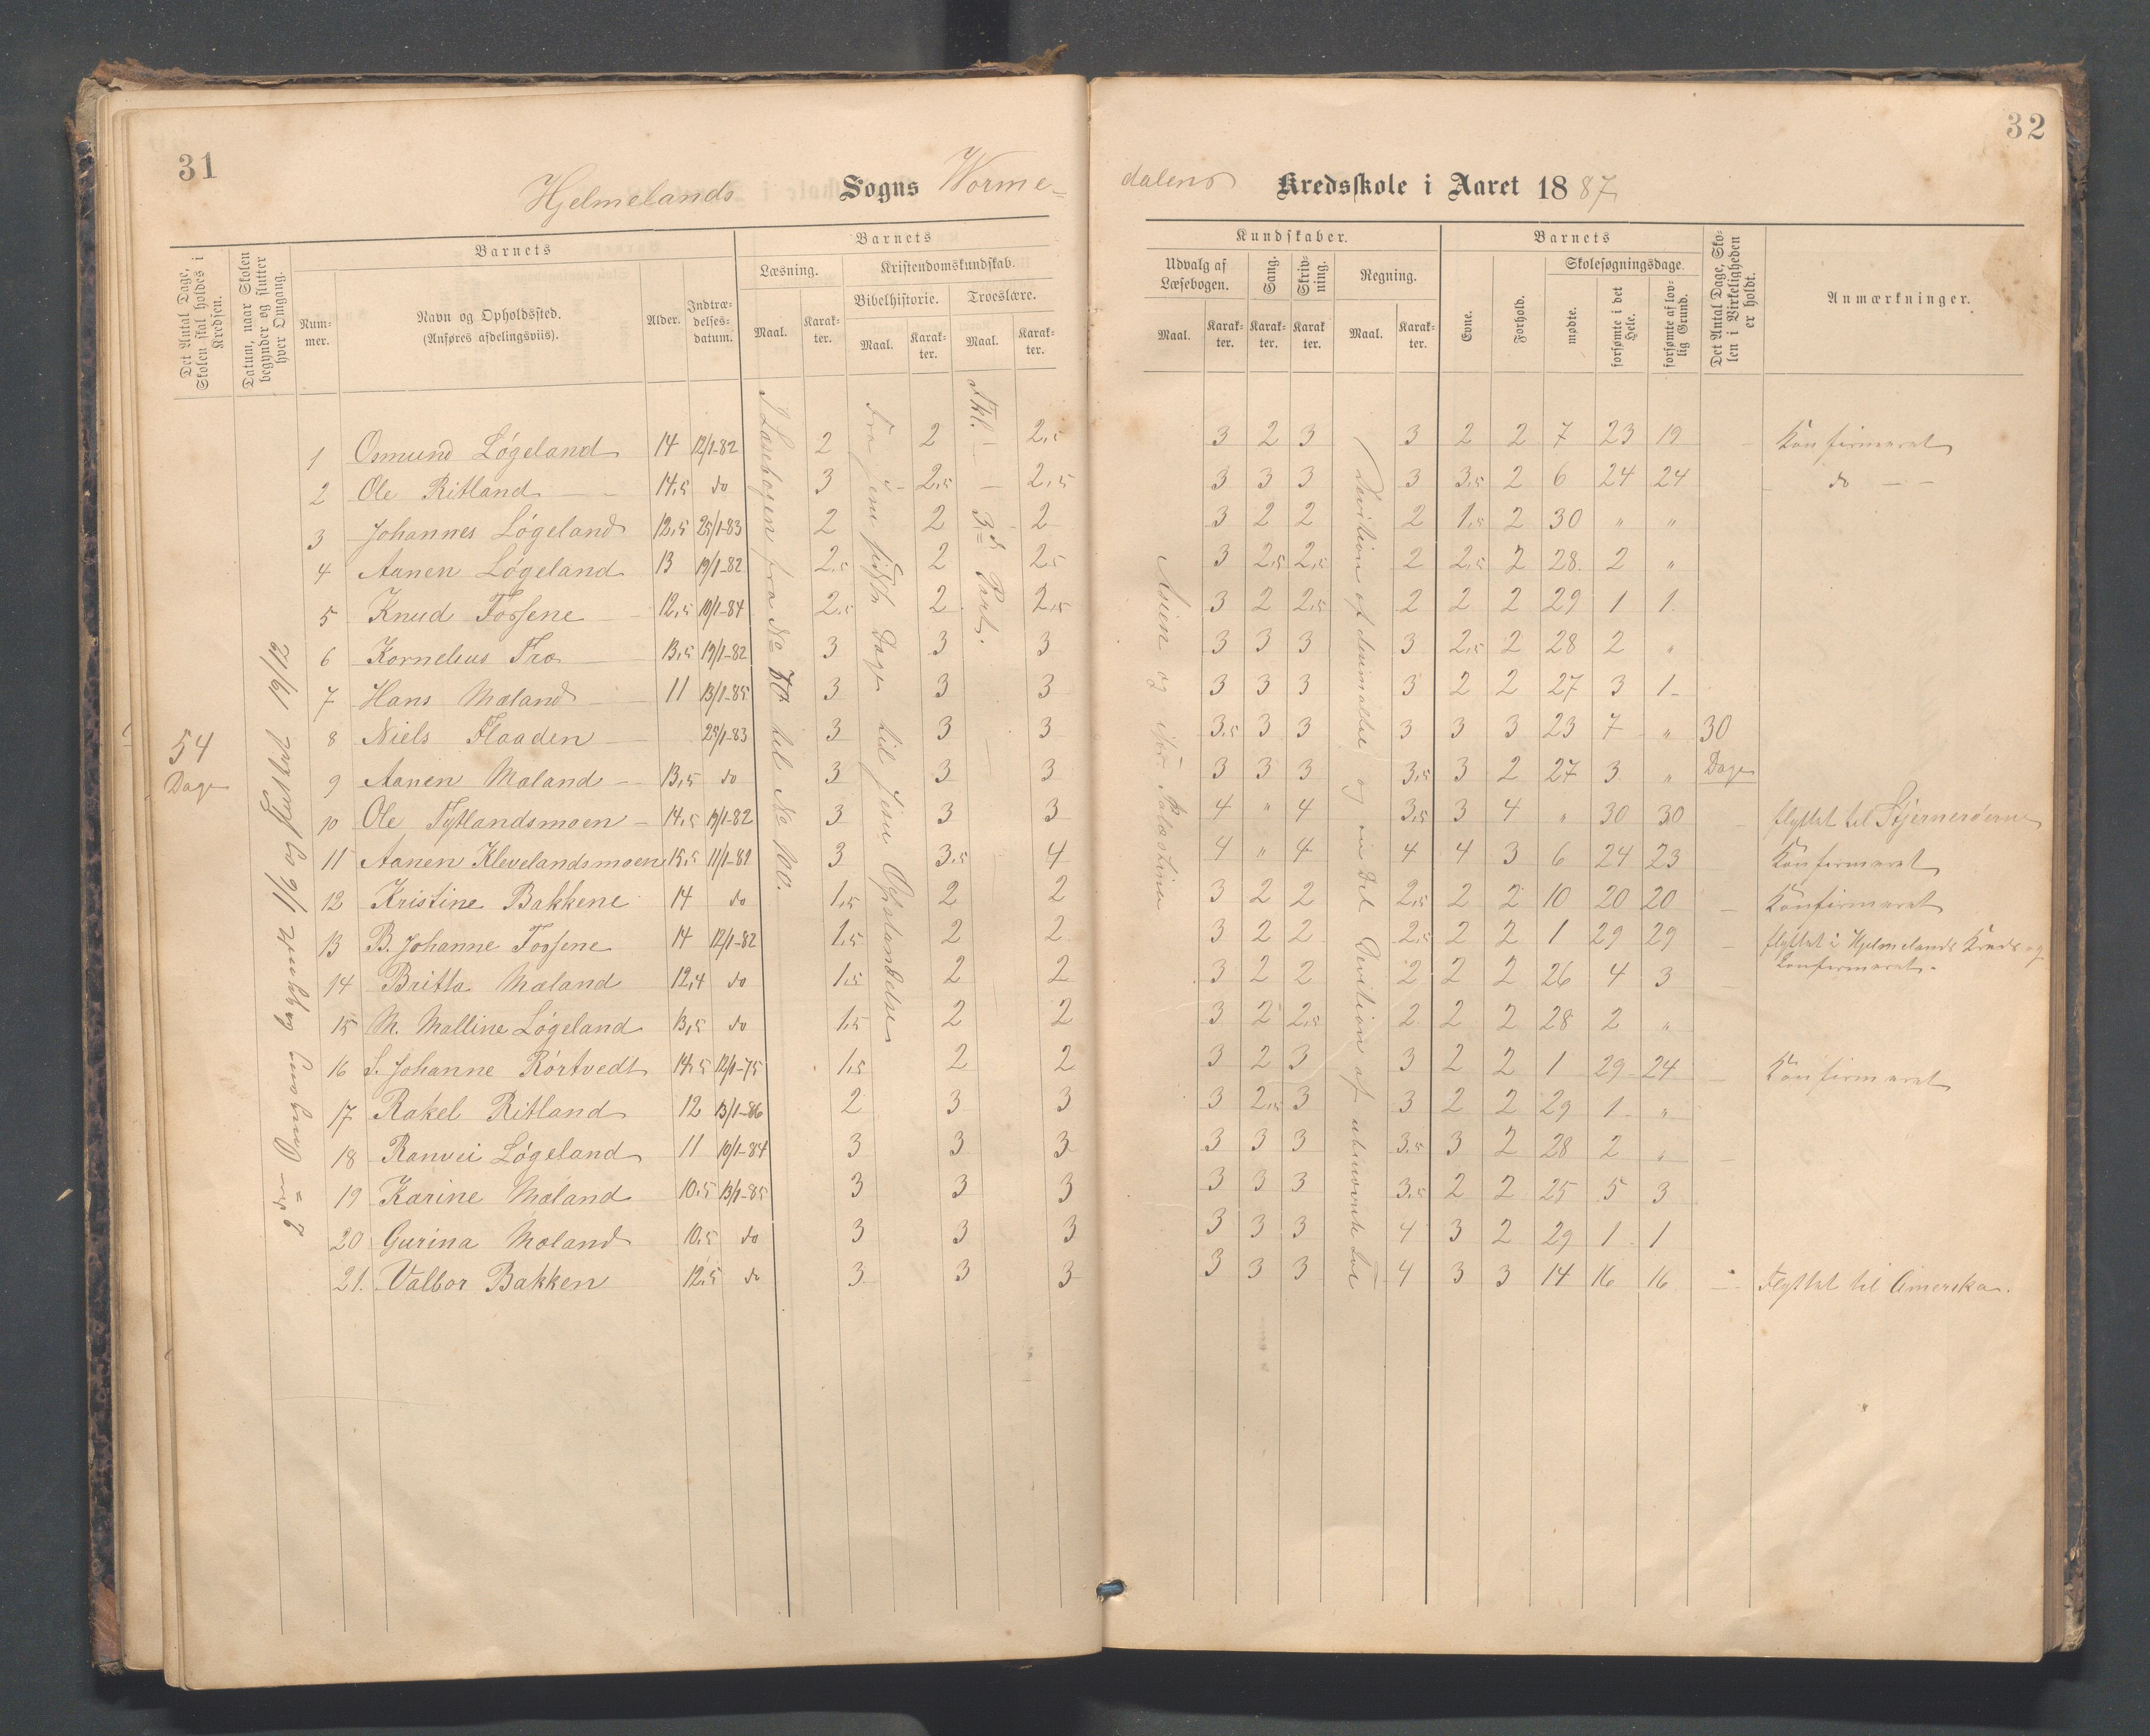 31
32
Hjelmelands Sogns Worme-
dalens Kredsskole i Aaret 1887
Det Antal Dage, Skolen skal holdes i Kredsen.
Datum, naar Skolen begynder og slutter hver Omgang.
Barnets
Nummer.
Navn og Opholdssted.
(Anføres afdelingsviis).
Alder.
Indtrædelsesdatum.
Barnets
Læsning.
Maal.
Karakter.
Kristendomskundskab.
Bibelhistorie.
Maal.
Karakter.
Troeslære.
Maal.
Karakter.
Kundskaber.
Udvalg af Læsebogen.
Maal.
Karakter.
Sang.
Karakter.
Skrivning.
Karakter
Regning.
Maal.
Karakter.
Barnets
Evne.
Forhold.
Skolesøgningsdage.
mødte.
forsømte i det Hele.
forsømte af lovlig Grund.
Det Antal Dage, Skolen i Virkeligheden er holdt.
Anmærkninger.
54
Dage
2den Omgang begyndt 1/6 og sluttet 19/12
I Læsebogen fra No 70 til No 110.
Fra Jesu sidste Dage til Jesu Opstandelse
Fkl.
3die Part.
Asien og især Palæstina
30
Dage
1 Osmund Løgeland 14 12/1-82 2 2 2,5 3 2 3 3 2 2 7 23 19 Konfirmeret
2 Ole Ritland 14,5 do 3 2,5 2,5 3 3 3 3 3,5 2 6 24 24 do
3 Johannes Løgeland 12,5 25/1-83 2 2 2 3 2 2 2 1,5 2 30 " "
4 Aanen Løgeland 13 19/1-82 2,5 2 2,5 3 2,5 2,5 2 2,5 2 28 2 "
5 Knud Fossene 12,5 19/1-84 2,5 2 2,5 3 2 2,5 2 2 2 29 1 1
6 Kornelius Tro 13,5 19/1-82 3 3 3 3 3 3 3 2,5 2 28 2 "
7 Hans Mæland 11 13/1-85 3 3 3 3 3 3 3 2 2 27 3 1
8 Niels Flaaden 25/1-83 3 3 3 3,5 3 3 3 3 3 23 7 "
9 Aanen Mæland 13,5 do 3 3 3 3 3 3 3,5 3 2 27 3 "
10 Ole Tytlandsmoen 14,5 19/1-82 3 3 3 4 " 4 3,5 3 4 " 30 30 flyttet til Stjernerøerne
11 Aanen Klevelandsmoen 15,5 11/1-81 3 3,5 4 4 " 4 4 4 3 6 24 23 Konfirmeret
12 Kristine Bakkene 14 do 1,5 2 2 3 2 2 2,5 2 2 10 20 20 Konfirmeret
13 B. Johanne Fossene 14 12/1-82 1,5 2 2 3 2 2 2,5 2 2 1 29 29 flyttet i Hjelmelands Kreds og
Konfirmeret.
14 Britta Mæland 12,4 do 1,5 2 2 3 2 2 2 2 2 26 4 3
15 M. Malline Løgeland 13,5 do 1,5 2 2 3 2 2,5 2 2 2 28 2 "
16 S. Johanne Rørtvedt 14,5 12/1-75 1,5 2 2 3 2 3 3 2 2 1 29 24 Konfirmeret
17 Rakel Ritland 12 13/1-86 2 3 3 3 2,5 3 3 2 2 29 1 "
18 Ranvei Løgeland 11 10/1-84 3 3 3 3 3 3 3,5 3 2 28 2 "
19 Karine Mæland 10,5 13/1-85 3 3 3 3 3 3 3,5 2 2 25 5 3
20 Gurina Mæland 10,5 do 3 3 3 3 3 3 4 3 2 29 1 1
21. Valbor Bakken 12,5 do 3 3 3 3 3 3 4 3 3 14 16 16 Flyttet til Amerika.